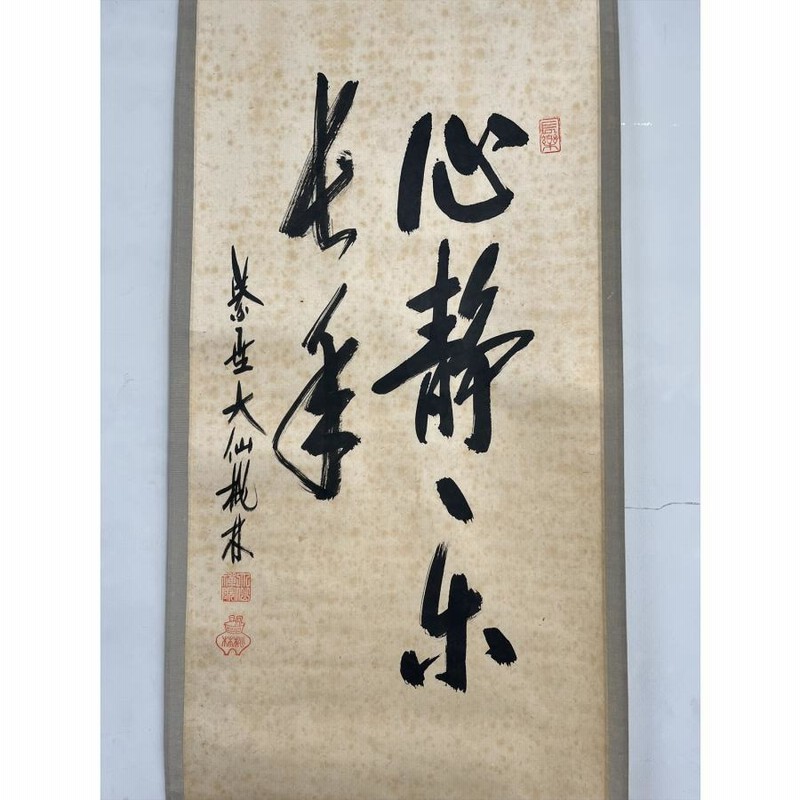 心静、楽
長年
紫野大仙桃林